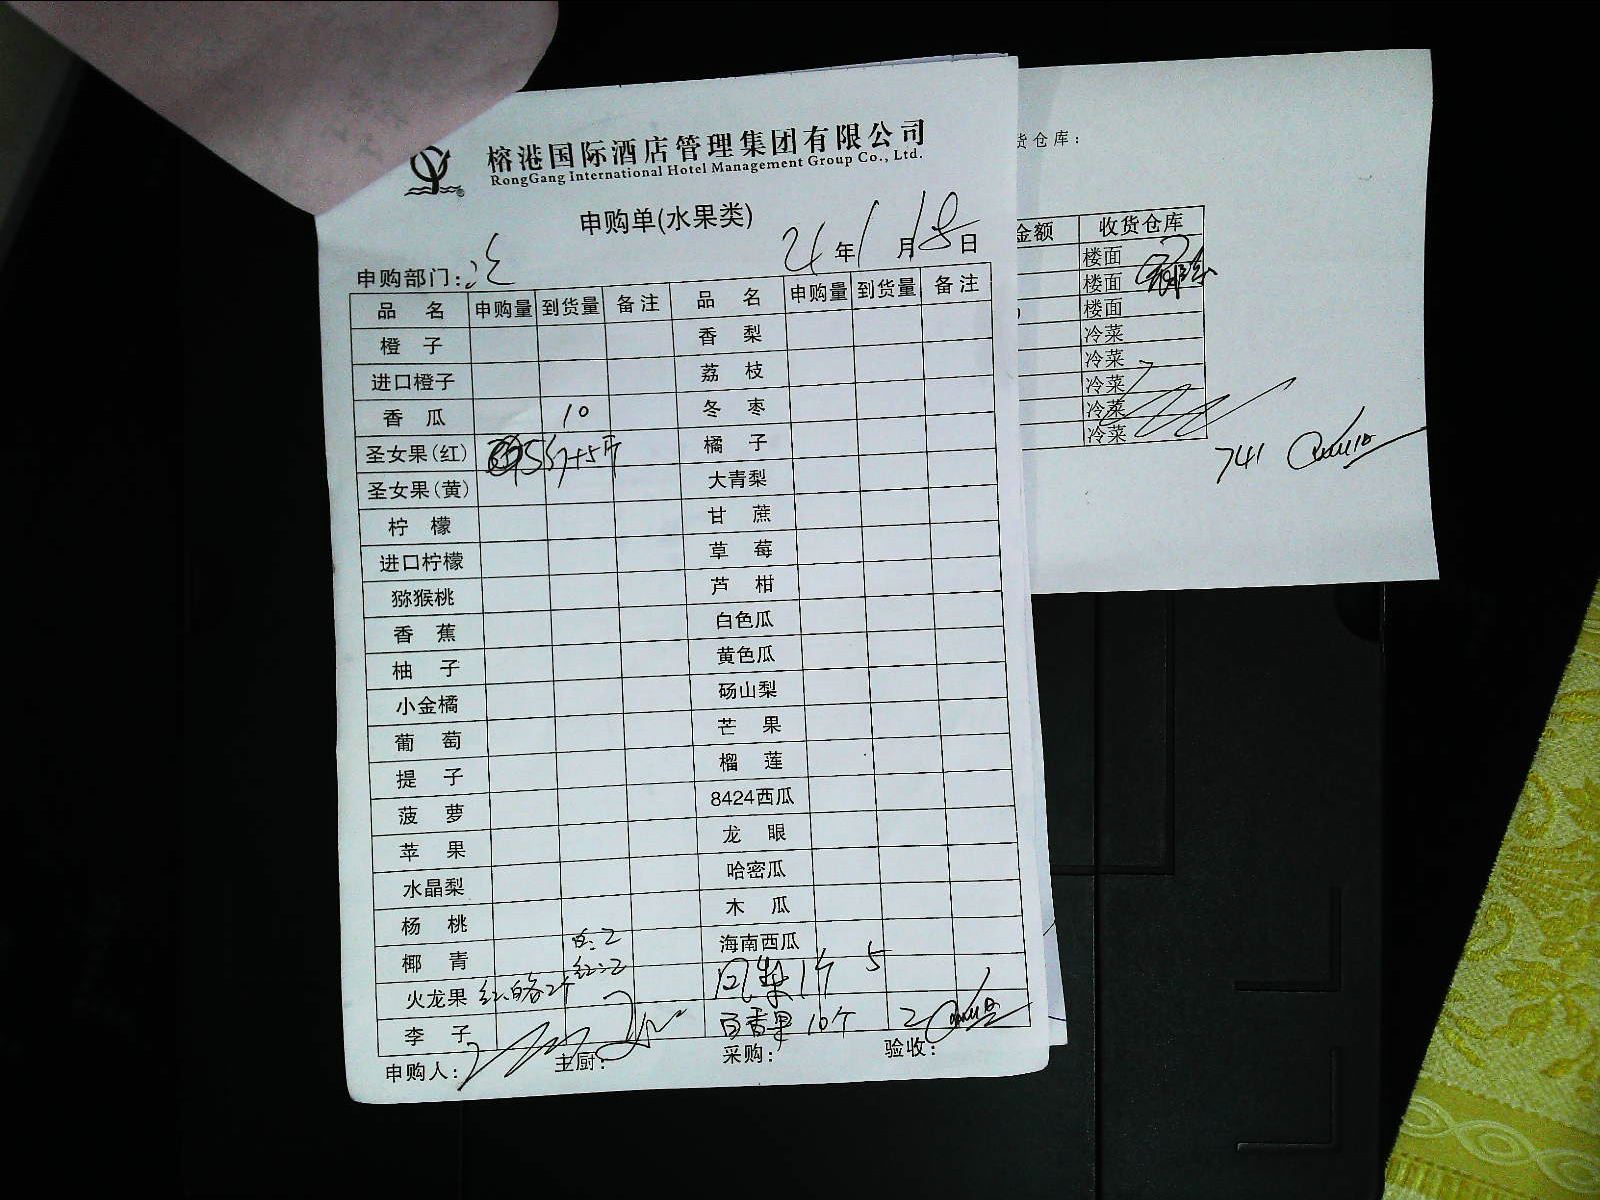 榕港国际酒店管理集团有限公司
RongGang International Hotel Management Group Co., Ltd.
申购单(水果类)
21年1月18日
申购部门:冷
品名 申购量 到货量 备注 品名 申购量 到货量 备注
橙子 香梨
进口橙子 荔枝
香瓜 10 冬枣
圣女果(红) 5 +5斤 橘子
圣女果(黄) 大青梨
柠檬 甘蔗
进口柠檬 草莓
猕猴桃 芦柑
香蕉 白色瓜
柚子 黄色瓜
小金橘 砀山梨
葡萄 芒果
提子 榴莲
菠萝 8424西瓜
苹果 龙眼
水晶梨 哈密瓜
杨桃 木瓜
椰青 白:2 海南西瓜
火龙果 红.白各2个 红:2 凤梨1个 5
李子 百香果 10个 2
申购人: 主厨: 采购: 验收:
货仓库:
金额 收货仓库
楼面
楼面
楼面
冷菜
冷菜
冷菜
冷菜
冷菜
741